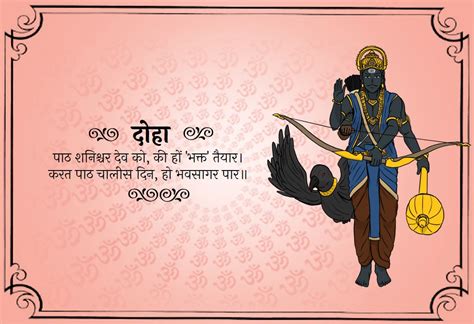 दोहा
पाठ शनिश्चर देव को, की हों 'भक्त' तैयार।
करत पाठ चालीस दिन, हो भवसागर पार॥